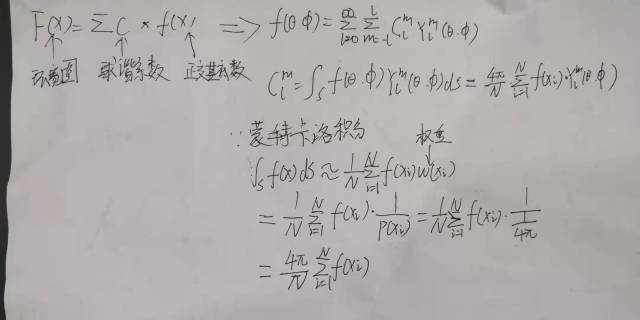 F(x) = Σ C * f(x) => f(θ.φ) = Σ_{l=0}^{∞} Σ_{m=-l}^{l} C_l^m Y_l^m(θ.φ)
环境图 球谐系数 正交基函数
C_l^m = ∫_S f(θ.φ) Y_l^m(θ.φ) ds = 4π/N Σ_{i=1}^{N} f(x_i) · Y_l^m(θ.φ)
∵ 蒙特卡洛积分 权重
∫_S f(x) ds ≈ 1/N Σ_{i=1}^{N} f(x_i) w(x_i)
= 1/N Σ_{i=1}^{N} f(x_i) · 1/P(x_i) = 1/N Σ_{i=1}^{N} f(x_i) · 1/(1/4π)
= 4π/N Σ_{i=1}^{N} f(x_i)